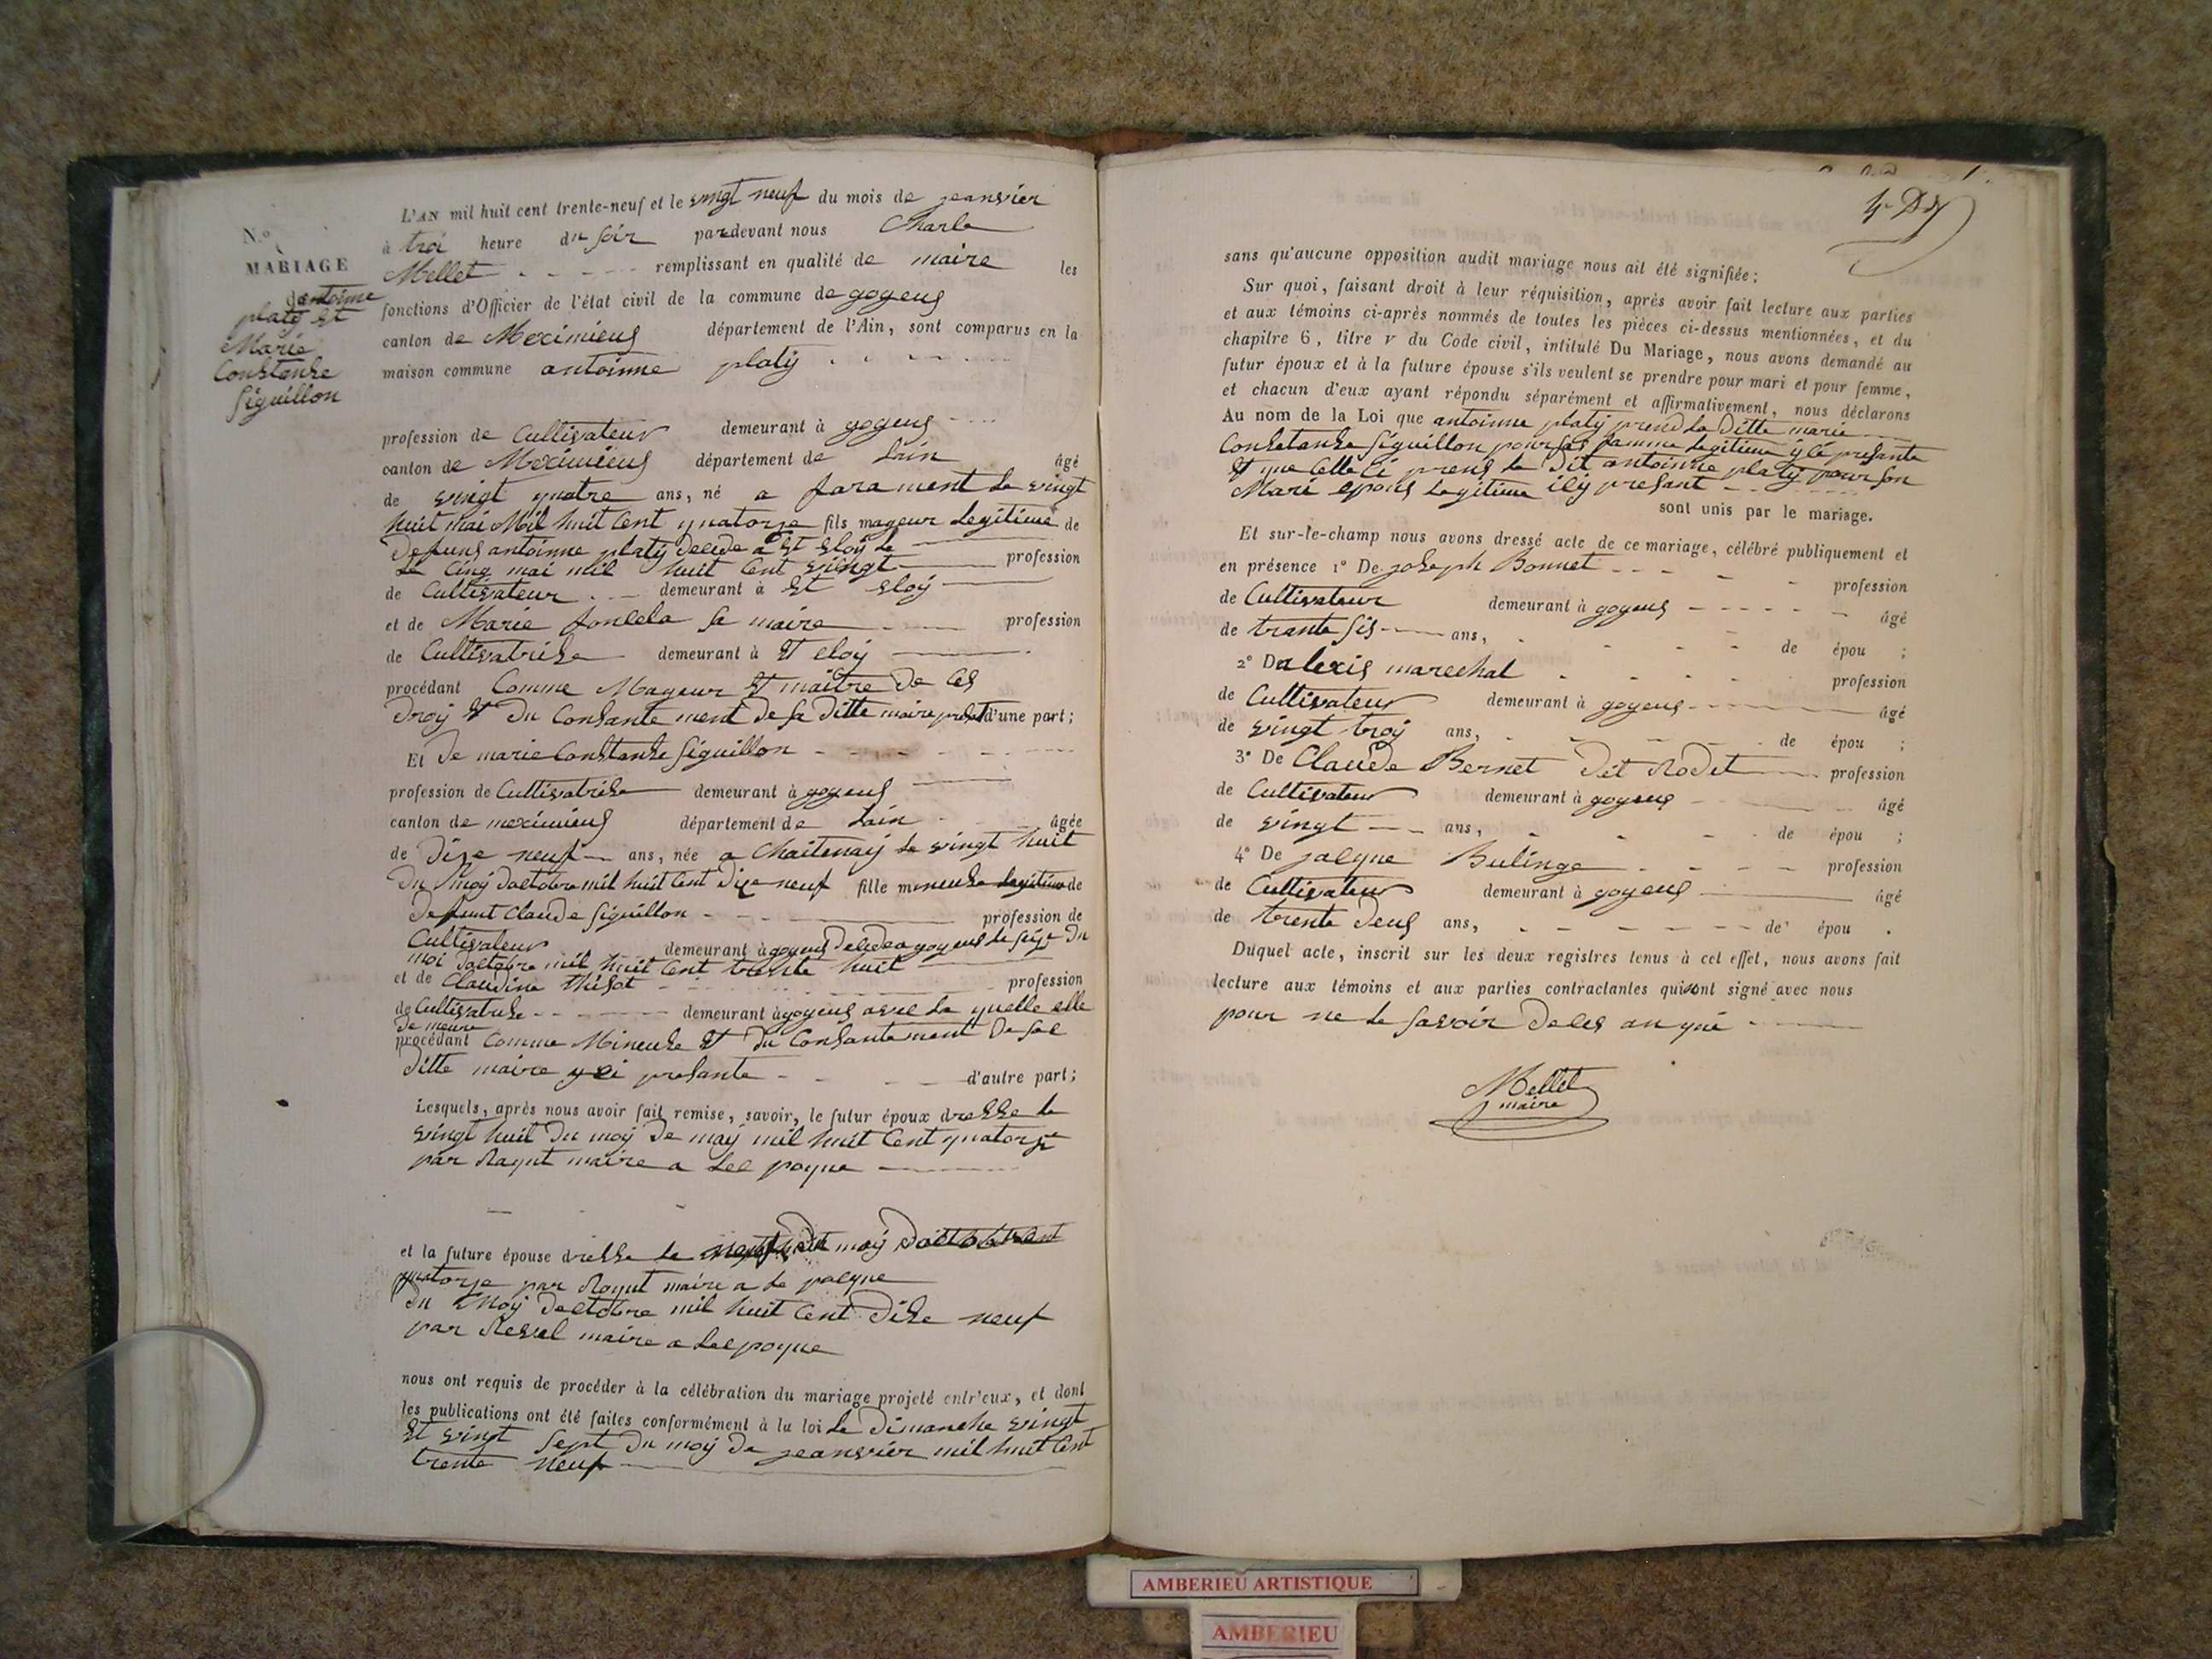 N.o
MARIAGE
d'antoinne
platy et
Marie
Constanse
Siguillon
L'AN mil huit cent trente-neuf et le vingt neuf du mois de jeanvier
à troi heure du soir pardevant nous Charle
Mellet remplissant en qualité de maire les
fonctions d'Officier de l'état civil de la commune de goyeus
canton de Meximieus département de l'Ain, sont comparus en la
maison commune antoinne platy
profession de Cultivateur demeurant à goyeus
canton de Meximieus département de Lain âgé
de vingt quatre ans, né a farament le vingt
huit mai Mil huit Cent quatorze fils mageur Legitime de
defuns antoinne platy decede a St Eloy le
Le Cinq mai mil huit Cent vingt profession
de Cultivateur demeurant à St Eloy
et de Marie fonlela sa maire profession
de Cultivatrise demeurant à St eloy
procédant Comme Mageur Et maitre de Ces
Droy Et Du Consantement de sa ditte maire d'une part;
Et de marie Constanse Siguillon
profession de Cultivatrise demeurant à goyeus
canton de meximieus département de Lain âgée
de Dize neuf ans, née a Chaitenay le vingt huit
Du moy doctobre mil huit Cent Dize neuf fille mineuse Legitime de
Defunt Claude Siguillon profession de
Cultivateur demeurant à goyeus Decede a goyeus le seize Du
moi doctobre mil huit Cent trente huit
et de Claudine profession
de Cultivatrise demeurant à goyeus avec La quelle elle
De meure
procédant Comme Mineuse Et du Consantement De sa
Ditte maire y ci presante d'autre part;
Lesquels, après nous avoir fait remise, savoir, le futur époux dresse le
vingt huit Du moy De may mil huit Cent quatorze
par maire a
et la future épouse dresse le moy
quatorze par maire a
Du Moy doctobre mil huit Cent Dize neuf
par Revel maire a
nous ont requis de procéder à la célébration du mariage projeté entr'eux, et dont
les publications ont été faites conformément à la loi le Dimanche vingt
Et vingt Sept Du moy De jeanvier mil huit Cent
trente neuf
sans qu'aucune opposition audit mariage nous ait été signifiée;
Sur quoi, faisant droit à leur réquisition, après avoir fait lecture aux parties
et aux témoins ci-après nommés de toutes les pièces ci-dessus mentionnées, et du
chapitre 6, titre v du Code civil, intitulé Du Mariage, nous avons demandé au
futur époux et à la future épouse s'ils veulent se prendre pour mari et pour femme,
et chacun d'eux ayant répondu séparément et affirmativement, nous déclarons
Au nom de la Loi que antoinne platy prend La Ditte marie
Constanse Siguillon pour sas famme Legitime y cé presante
Et que Celle Ci prens le Dit antoinne platy pour son
Mari epous Legitime icy presant
sont unis par le mariage.
Et sur-le-champ nous avons dressé acte de ce mariage, célébré publiquement et
en présence 1° De joseph Bonnet profession
de Cultivateur demeurant à goyeus âgé
de trante sis ans, de épou ;
2° De alexis marechal profession
de Cultivateur demeurant à goyeus âgé
de vingt troy ans, de épou ;
3° De Claude Bernet Dit Rodet profession
de Cultivateur demeurant à goyeus âgé
de vingt ans, de épou ;
4° De jacque Bulinge profession
de Cultivateur demeurant à goyeus âgé
de trente Deus ans, de épou .
Duquel acte, inscrit sur les deux registres tenus à cet effet, nous avons fait
lecture aux témoins et aux parties contractantes qui ont signé avec nous
pour ne Le savoir
Mellet
maire
AMBERIEU ARTISTIQUE
AMBERIEU